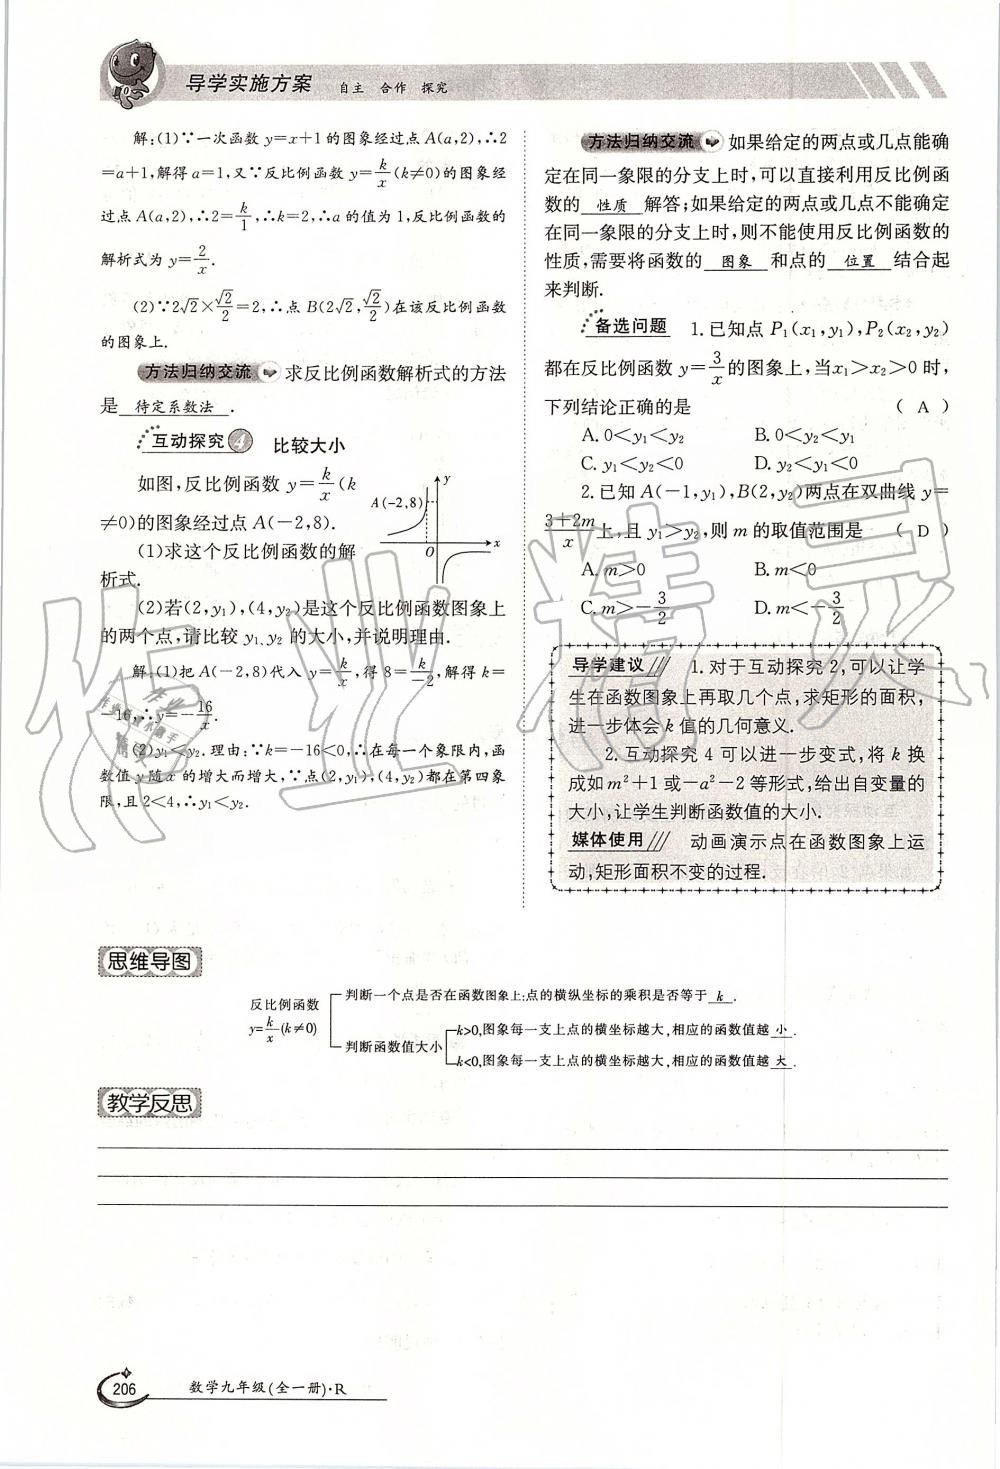 导学实施方案 自主 合作 探究
解:(1)∵一次函数 y=x+1 的图象经过点 A(a,2),∴2
=a+1,解得 a=1,又∵反比例函数 y=k/x(k≠0)的图象经
过点 A(a,2),∴2=k/1,∴k=2,∴a 的值为 1,反比例函数的
解析式为 y=2/x.
(2)∵2√2×√2/2=2,∴点 B(2√2,√2/2)在该反比例函数
的图象上.
方法归纳交流 求反比例函数解析式的方法
是 待定系数法 .
互动探究 4 比较大小
如图,反比例函数 y=k/x(k
≠0)的图象经过点 A(-2,8).
(1)求这个反比例函数的解
析式.
y
A(-2,8)
O
x
(2)若(2,y₁),(4,y₂)是这个反比例函数图象上
的两个点,请比较 y₁、y₂ 的大小,并说明理由.
解:(1)把 A(-2,8)代入 y=k/x,得 8=k/-2,解得 k=
-16,∴y=-16/x.
(2)y₁<y₂.理由:∵k=-16<0,∴在每一个象限内,函
数值 y 随 x 的增大而增大,∵点(2,y₁),(4,y₂)都在第四象
限,且 2<4,∴y₁<y₂.
方法归纳交流 如果给定的两点或几点能确
定在同一象限的分支上时,可以直接利用反比例函
数的 性质 解答;如果给定的两点或几点不能确定
在同一象限的分支上时,则不能使用反比例函数的
性质,需要将函数的 图象 和点的 位置 结合起
来判断.
备选问题 1.已知点 P₁(x₁,y₁),P₂(x₂,y₂)
都在反比例函数 y=3/x的图象上,当x₁>x₂>0 时,
下列结论正确的是 ( A )
A.0<y₁<y₂ B.0<y₂<y₁
C.y₁<y₂<0 D.y₂<y₁<0
2.已知 A(-1,y₁),B(2,y₂)两点在双曲线 y=
3+2m/x上,且 y₁>y₂,则 m 的取值范围是 ( D )
A.m>0 B.m<0
C.m>-3/2 D.m<-3/2
导学建议 1.对于互动探究 2,可以让学
生在函数图象上再取几个点,求矩形的面积,
进一步体会 k 值的几何意义.
2.互动探究 4 可以进一步变式,将 k 换
成如 m²+1 或-a²-2 等形式,给出自变量的
大小,让学生判断函数值的大小.
媒体使用 动画演示点在函数图象上运
动,矩形面积不变的过程.
思维导图
反比例函数
y=k/x(k≠0)
判断一个点是否在函数图象上:点的横纵坐标的乘积是否等于 k .
判断函数值大小
k>0,图象每一支上点的横坐标越大,相应的函数值越 小 .
k<0,图象每一支上点的横坐标越大,相应的函数值越 大 .
教学反思
206 数学九年级(全一册)·R
作业精灵